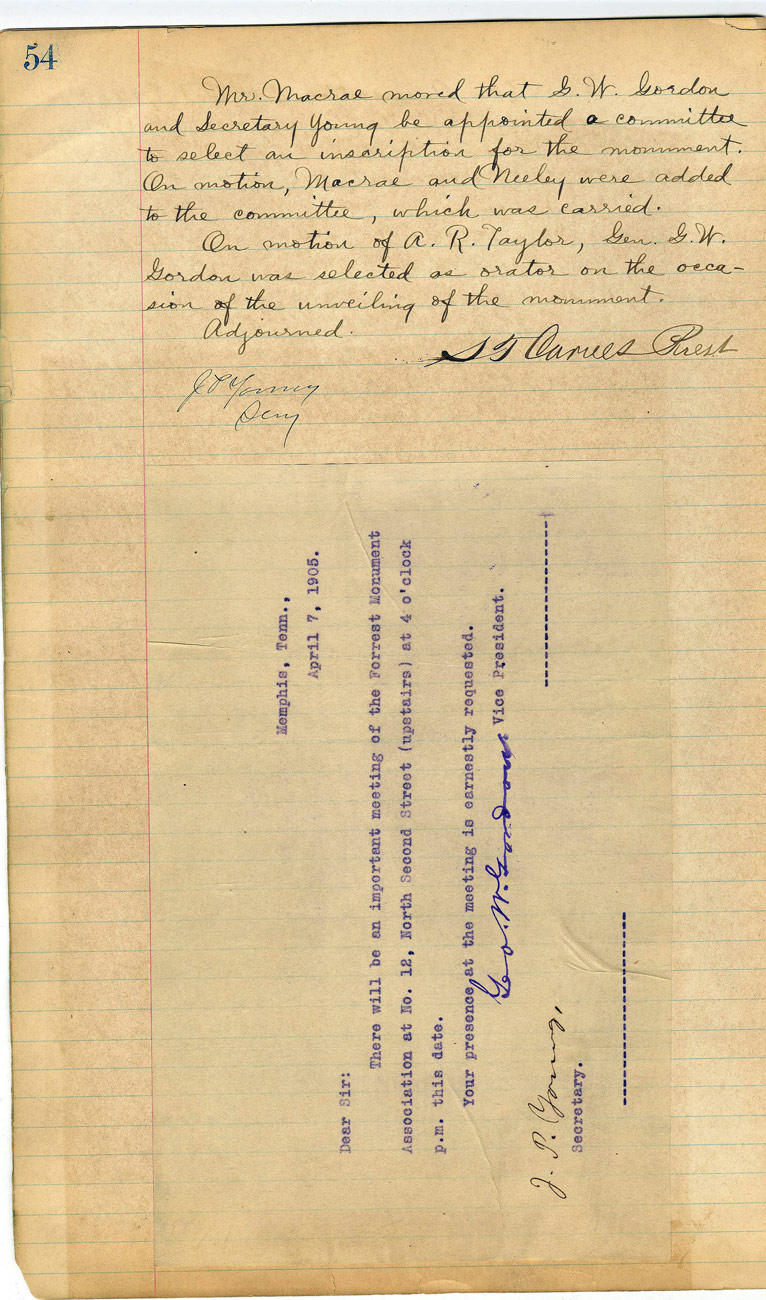 54
Mr. Macrae moved that G. W. Gordon
and Secretary Young be appointed a committee
to select an inscription for the monument.
On motion, Macrae and Neeley were added
to the committee, which was carried.
On motion of A. R. Taylor, Gen. G. W.
Gordon was selected as orator on the occa-
sion of the unveiling of the monument.
Adjourned.
S T Carnes Prest
J P Young
Secy
Memphis, Tenn.,
April 7, 1905.
Dear Sir:
There will be an important meeting of the Forrest Monument
Association at No. 12, North Second Street (upstairs) at 4 o'clock
p.m. this date.
Your presence at the meeting is earnestly requested.
Geo. W. Gordon Vice President.
J. P. Young,
Secretary.